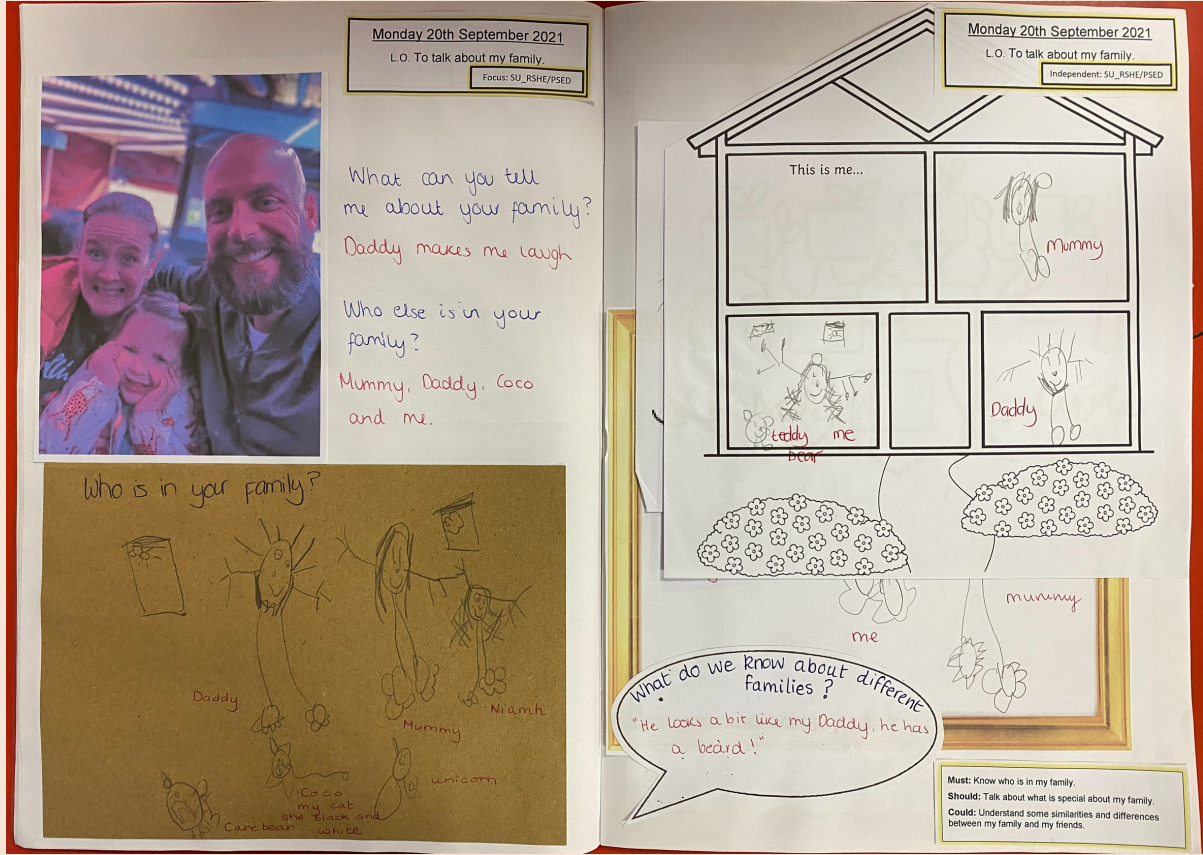 Monday 20th September 2021
L.O. To talk about my family.
Focus: SU_RSHE/PSED
What can you tell
me about your family?
Daddy makes me laugh
Who else is in your
family?
Mummy, Daddy, Coco
and me.
Who is in your family?
Daddy
Mummy
Niamh
Coco
my cat
she black and
white
unicorn
Carebear
Monday 20th September 2021
L.O. To talk about my family.
Independent: SU_RSHE/PSED
This is me...
Mummy
teddy me
bear
Daddy
me
mummy
What do we know about different
families?
"He looks a bit like my Daddy, he has
a beard!"
Must: Know who is in my family.
Should: Talk about what is special about my family.
Could: Understand some similarities and differences
between my family and my friends.